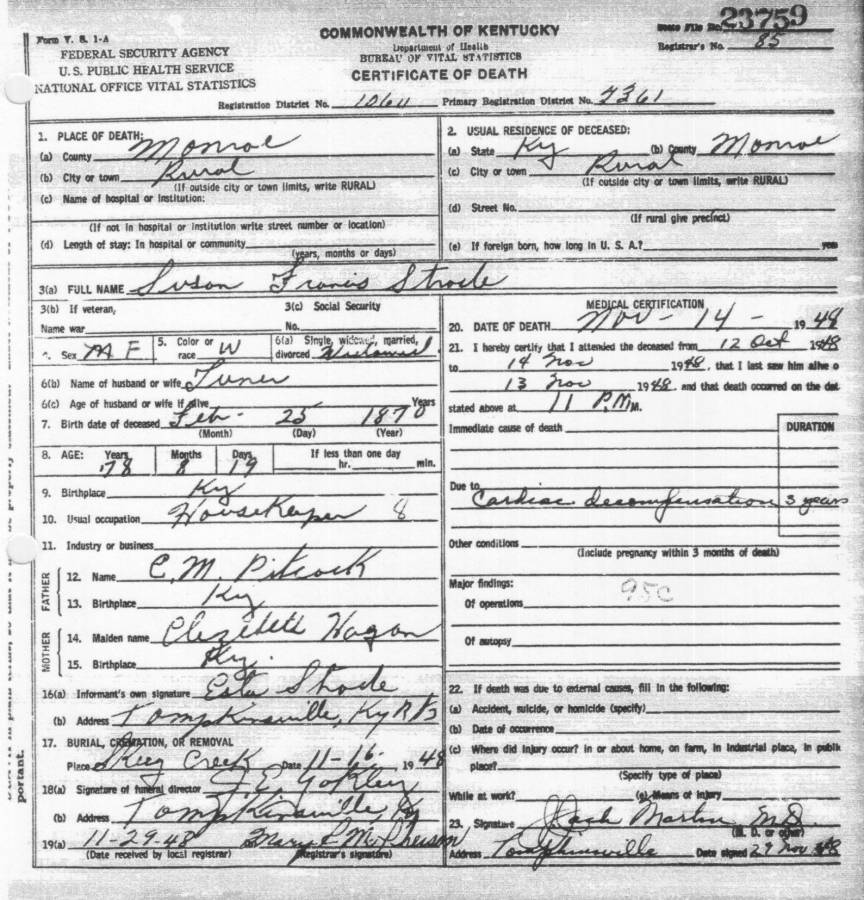 Form V. S. 1-A
FEDERAL SECURITY AGENCY
U.S. PUBLIC HEALTH SERVICE
NATIONAL OFFICE VITAL STATISTICS
COMMONWEALTH OF KENTUCKY
Department of Health
BUREAU OF VITAL STATISTICS
CERTIFICATE OF DEATH
State File No. 23759
Registrar's No. 85
Registration District No. 1060 Primary Registration District No. 7361
1. PLACE OF DEATH:
(a) County Monroe
(b) City or town Rural
(If outside city or town limits, write RURAL)
(c) Name of hospital or Institution:
(If not in hospital or institution write street number or location)
(d) Length of stay: In hospital or community
(years, months or days)
2. USUAL RESIDENCE OF DECEASED:
(a) State Ky (b) County Monroe
(c) City or town Rural
(If outside city or town limits, write RURAL)
(d) Street No.
(If rural give precinct)
(e) If foreign born, how long in U. S. A.? years
3(a) FULL NAME Suson Francis Strode
3(b) If veteran,
Name war
3(c) Social Security
No.
4. Sex F
5. Color or
race W
6(a) Single, widowed, married,
divorced Widowed
6(b) Name of husband or wife Tuner
6(c) Age of husband or wife if alive Years
7. Birth date of deceased Feb- 25 1870
(Month) (Day) (Year)
8. AGE: Years Months Days If less than one day
78 8 19 hr. min.
9. Birthplace Ky
10. Usual occupation HouseKeeper 8
11. Industry or business
FATHER
12. Name C. M. Pitcock
13. Birthplace Ky
MOTHER
14. Maiden name Elezibeth Hagan
15. Birthplace Ky.
16(a) Informant's own signature Esta Strode
(b) Address Tompkinsville, Ky R
17. BURIAL, CREMATION, OR REMOVAL
Place Skeg Creek Date 11-16 1948
18(a) Signature of funeral director J. E. Yokley
(b) Address Tompkinsville, Ky
19(a) 11-29-48 Mary L McPherson
(Date received by local registrar) (Registrar's signature)
MEDICAL CERTIFICATION
20. DATE OF DEATH Nov - 14 - 1948
21. I hereby certify that I attended the deceased from 12 Oct 1948
to 14 Nov 1948, that I last saw him alive o
13 Nov 1948, and that death occurred on the dat
stated above at 11 P.M M.
Immediate cause of death
DURATION
Due to Cardiac decompensation 3 years
Other conditions
(Include pregnancy within 3 months of death)
Major findings: 95c
Of operations
Of autopsy
22. If death was due to external causes, fill in the following:
(a) Accident, suicide, or homicide (specify)
(b) Date of occurrence
(c) Where did injury occur? in or about home, on farm, in industrial place, in public
place?
(Specify type of place)
While at work? (e) Means of Injury
23. Signature Martin M.D.
(M. D. or other)
Address Tompkinsville Date signed 29 Nov 48
portant.